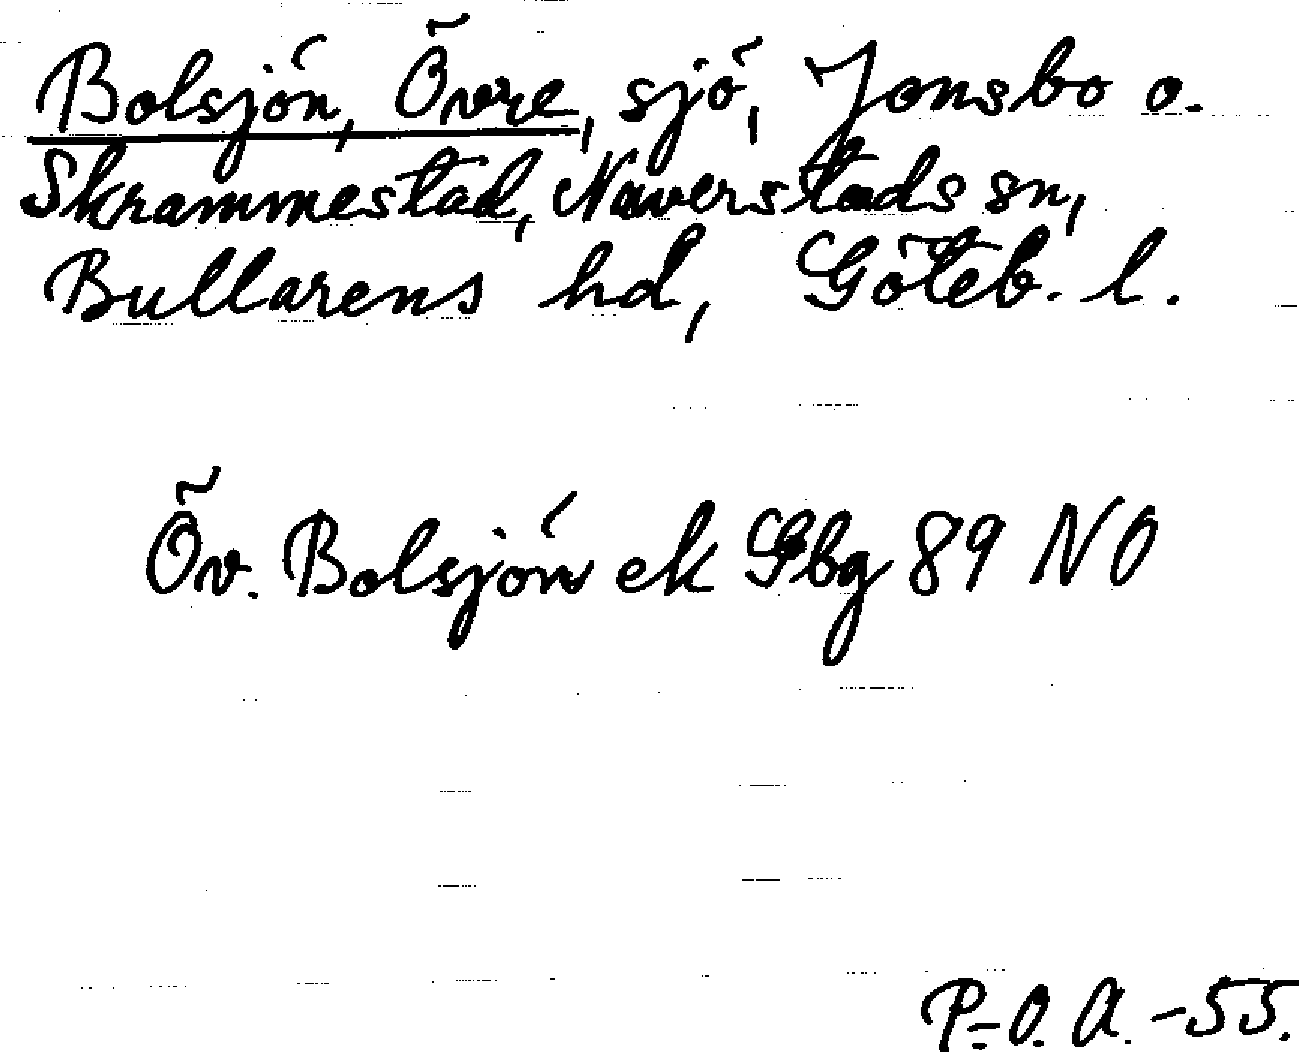 Bolsjön, Övre, sjö, Jonsbo o.
Skrammestad, Naverstads sn,
Bullarens hd, Göteb. l.
Öv. Bolsjön ek Gbg 89 NO
P.-O. A. -55.